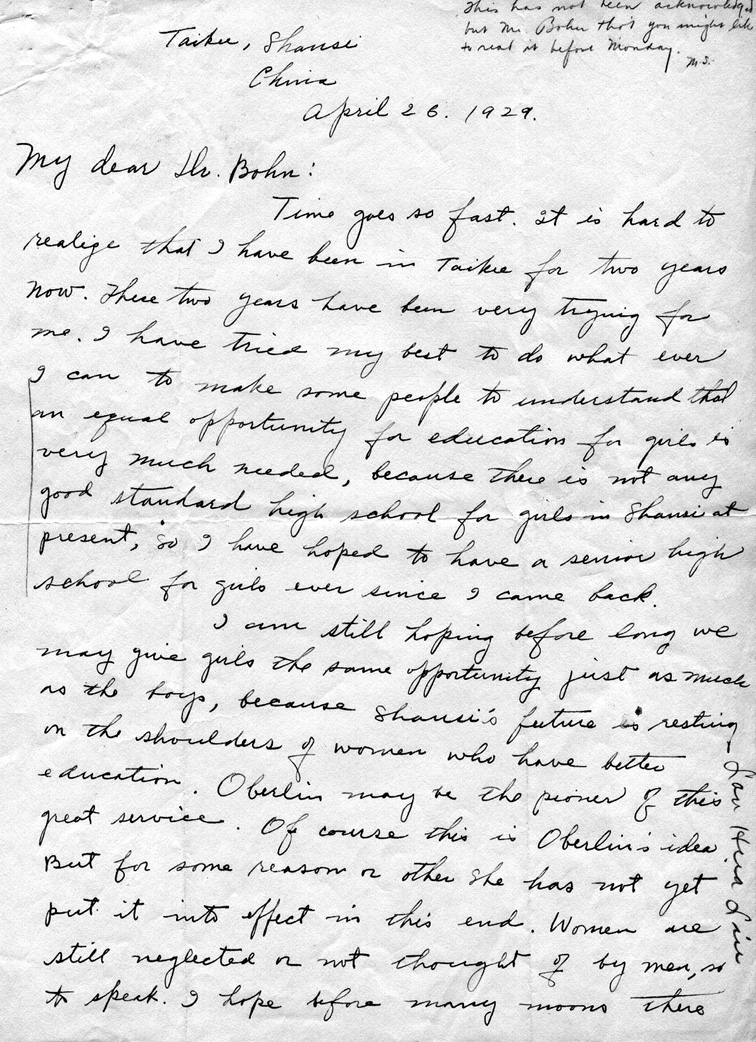 This has not been acknowledged
but Mr. Bohn tho't you might like
to read it before Monday.
M.S.
Taiku, Shansi
China
April 26. 1929.
My dear Mr. Bohn:
Time goes so fast. It is hard to
realize that I have been in Taiku for two years
now. These two years have been very trying for
me. I have tried my best to do what ever
I can to make some people to understand that
an equal opportunity for education for girls is
very much needed, because there is not any
good standard high school for girls in Shansi at
present, so I have hoped to have a senior high
school for girls ever since I came back.
I am still hoping before long we
may give girls the same opportunity just as much
as the boys, because Shansi's future is resting
on the shoulders of women who have better
education. Oberlin may be the pioner of this
great service. Of course this is Oberlin's idea.
But for some reason or other she has not yet
put it into effect in this end. Women are
still neglected or not thought of by men, so
to speak. I hope before many moons there